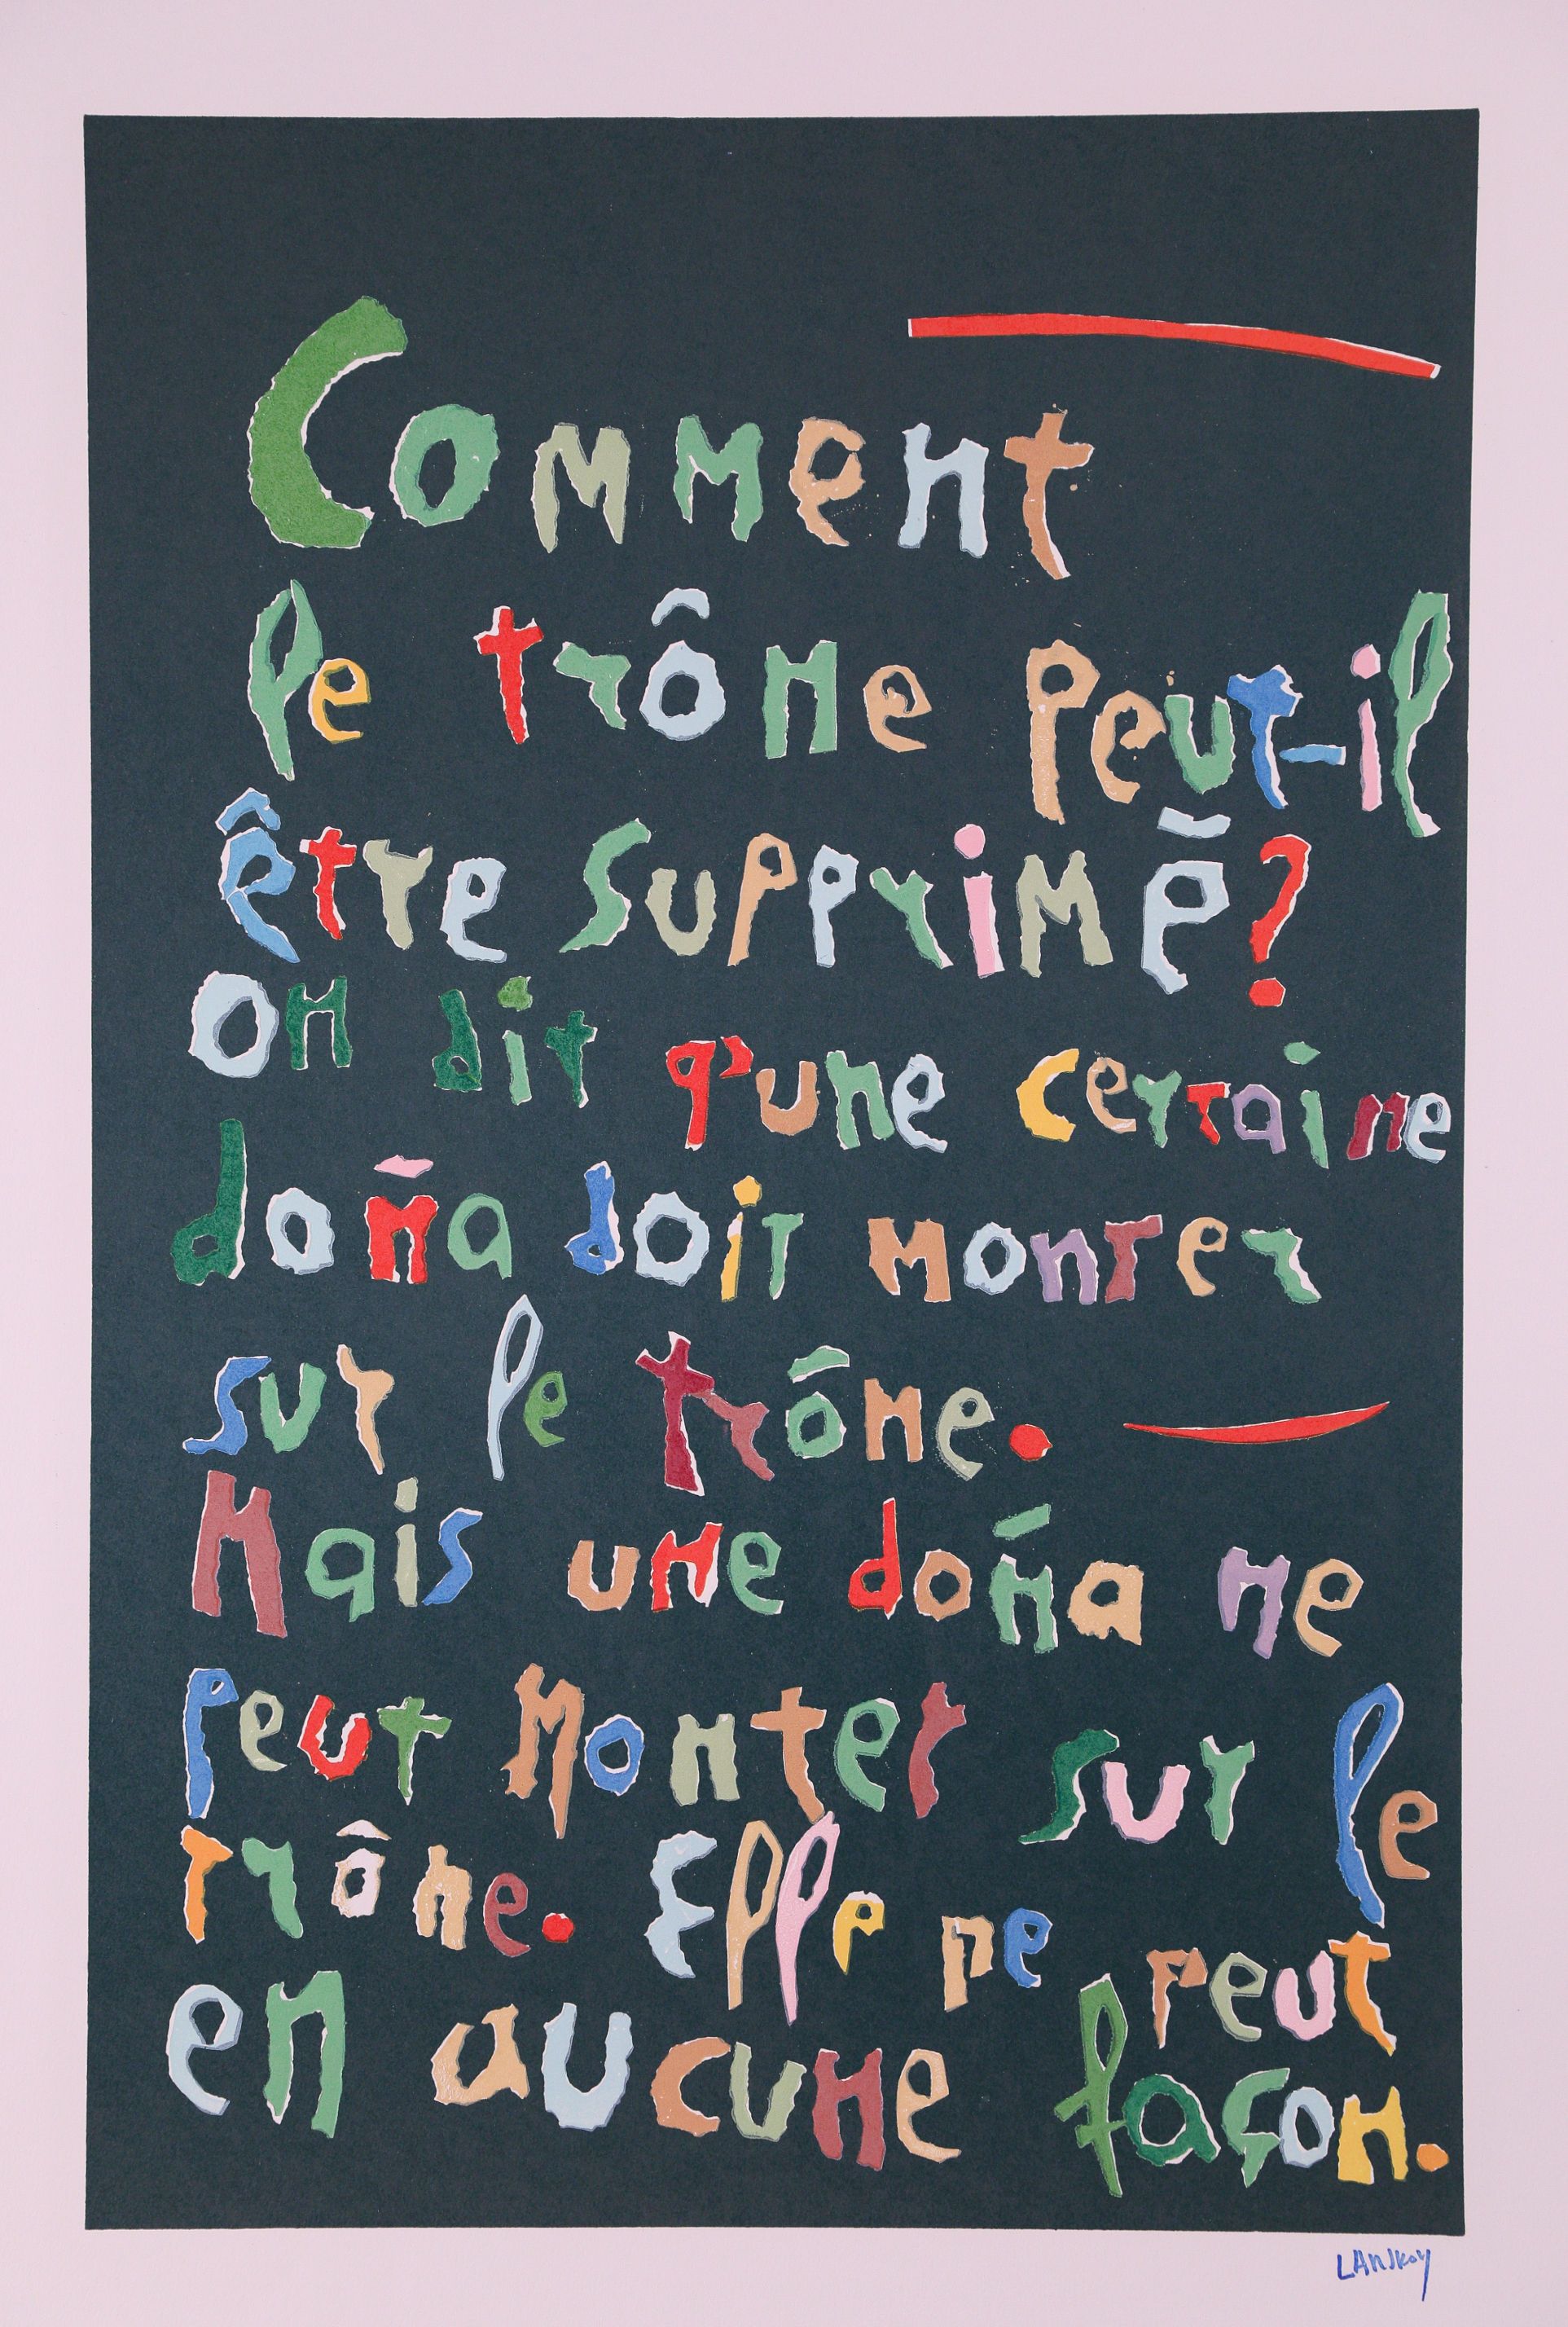 Comment
le trône peut-il
être supprimé?
On dit q'une certaine
doña doit monter
sur le trône.
Mais une doña ne
peut monter sur le
trône. Elle ne peut
en aucune façon.
LANSKOY